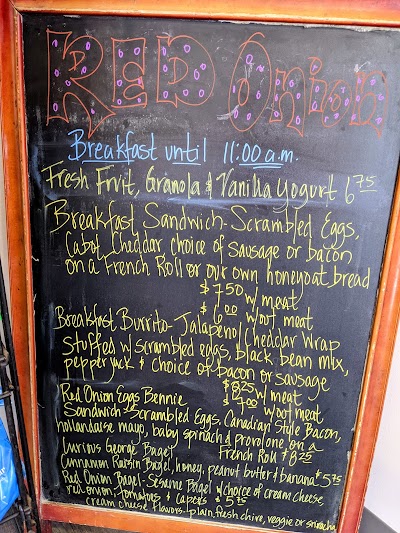 RED Onion
Breakfast until 11:00 a.m.
Fresh Fruit, Granola & Vanilla Yogurt 6.75
Breakfast Sandwich- Scrambled Eggs,
Cabot Cheddar choice of Sausage or bacon
on a French Roll or our own honeyoat bread
$7.50 w/ meat
$6.00 w/out meat
Breakfast Burrito- Jalapeno/Cheddar Wrap
Stuffed w/ scrambled eggs, black bean mix,
pepperjack & choice of bacon or sausage
$8.25 w/ meat
Red Onion Eggs Bennie $7.00 w/out meat
Sandwich- Scrambled Eggs, Canadian Style Bacon,
hollandaise mayo, baby spinach & provolone on a
French Roll $8.25
Curious George Bagel
Cinnamon Raisin Bagel, honey, peanut butter & banana $5.75
Red Onion Bagel- Sesame Bagel w/ choice of cream cheese,
red onion, tomatoes & capers $5.75
cream cheese flavors- plain, fresh chive, veggie or sriracha